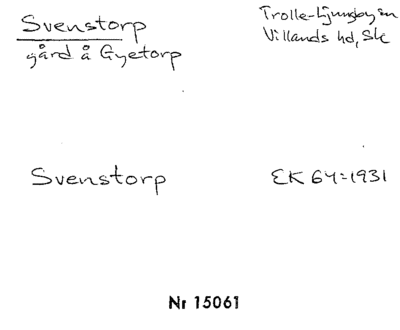 Svenstorp
gård å Gyetorp
Trolle-Ljungby sn
Villands hd, Sk
Svenstorp
EK 64:1931
Nr 15061